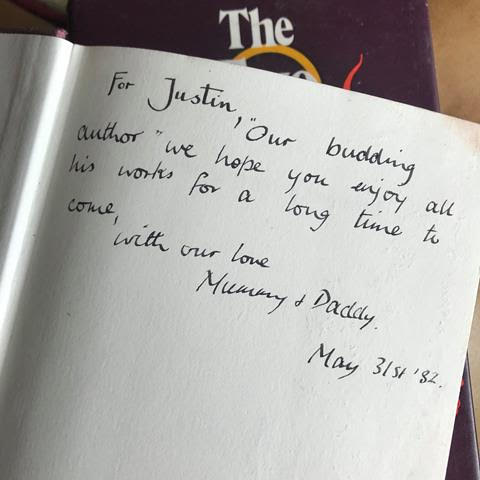 The
For Justin, "Our budding
author" we hope you enjoy all
his works for a long time to
come,
with our love
Mummy & Daddy.
May 31st '82.